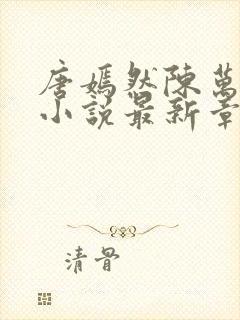 唐嫣然陳萬
小說最新章
清骨